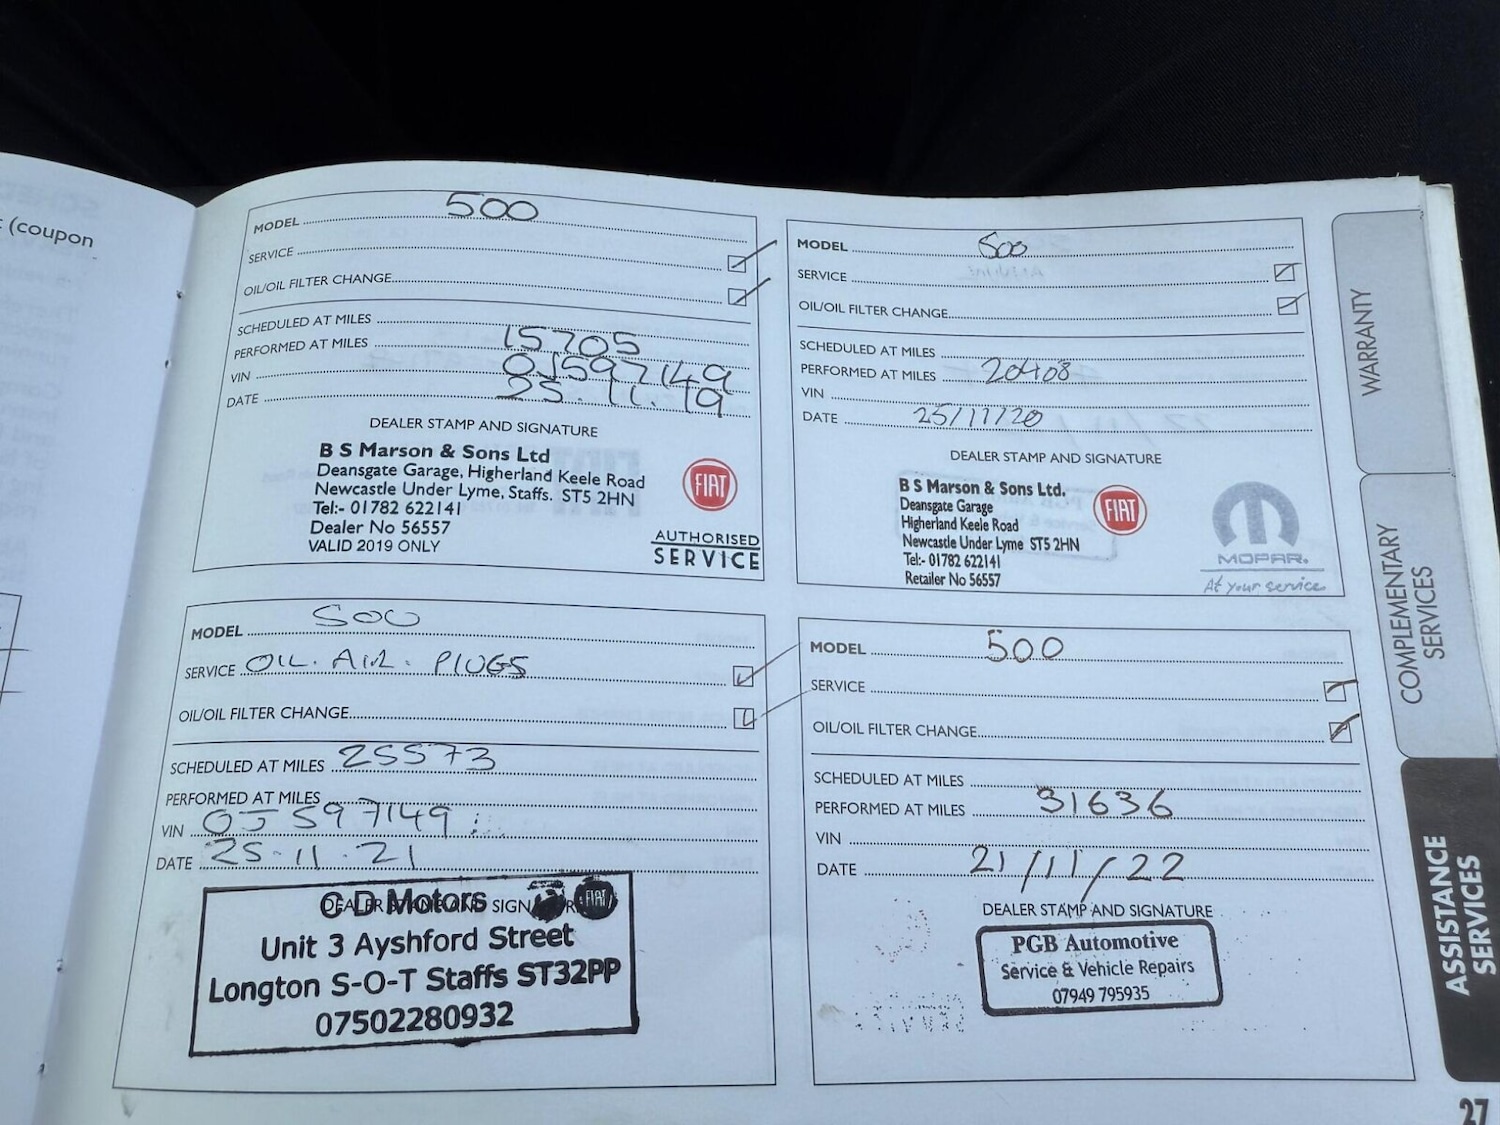 : (coupon
MODEL 500
SERVICE
OIL/OIL FILTER CHANGE
SCHEDULED AT MILES
PERFORMED AT MILES 15705
VIN 0J597149
DATE 25.11.19
DEALER STAMP AND SIGNATURE
B S Marson & Sons Ltd
Deansgate Garage, Higherland Keele Road
Newcastle Under Lyme, Staffs. ST5 2HN
Tel:- 01782 622141
Dealer No 56557
VALID 2019 ONLY
FIAT
AUTHORISED
SERVICE
MODEL 500
SERVICE
OIL/OIL FILTER CHANGE
SCHEDULED AT MILES
PERFORMED AT MILES 20408
VIN
DATE 25/11/20
DEALER STAMP AND SIGNATURE
B S Marson & Sons Ltd.
Deansgate Garage
Higherland Keele Road
Newcastle Under Lyme ST5 2HN
Tel:- 01782 622141
Retailer No 56557
FIAT
MOPAR.
At your service.
MODEL 500
SERVICE OIL. AIR. PLUGS
OIL/OIL FILTER CHANGE
SCHEDULED AT MILES 25573
PERFORMED AT MILES
VIN 0J597149
DATE 25-11.21
DEALER STAMP AND SIGNATURE
C D Motors FIAT
Unit 3 Ayshford Street
Longton S-O-T Staffs ST32PP
07502280932
MODEL 500
SERVICE
OIL/OIL FILTER CHANGE
SCHEDULED AT MILES
PERFORMED AT MILES 31636
VIN
DATE 21/11/22
DEALER STAMP AND SIGNATURE
PGB Automotive
Service & Vehicle Repairs
07949 795935
WARRANTY
COMPLEMENTARY
SERVICES
ASSISTANCE
SERVICES
27